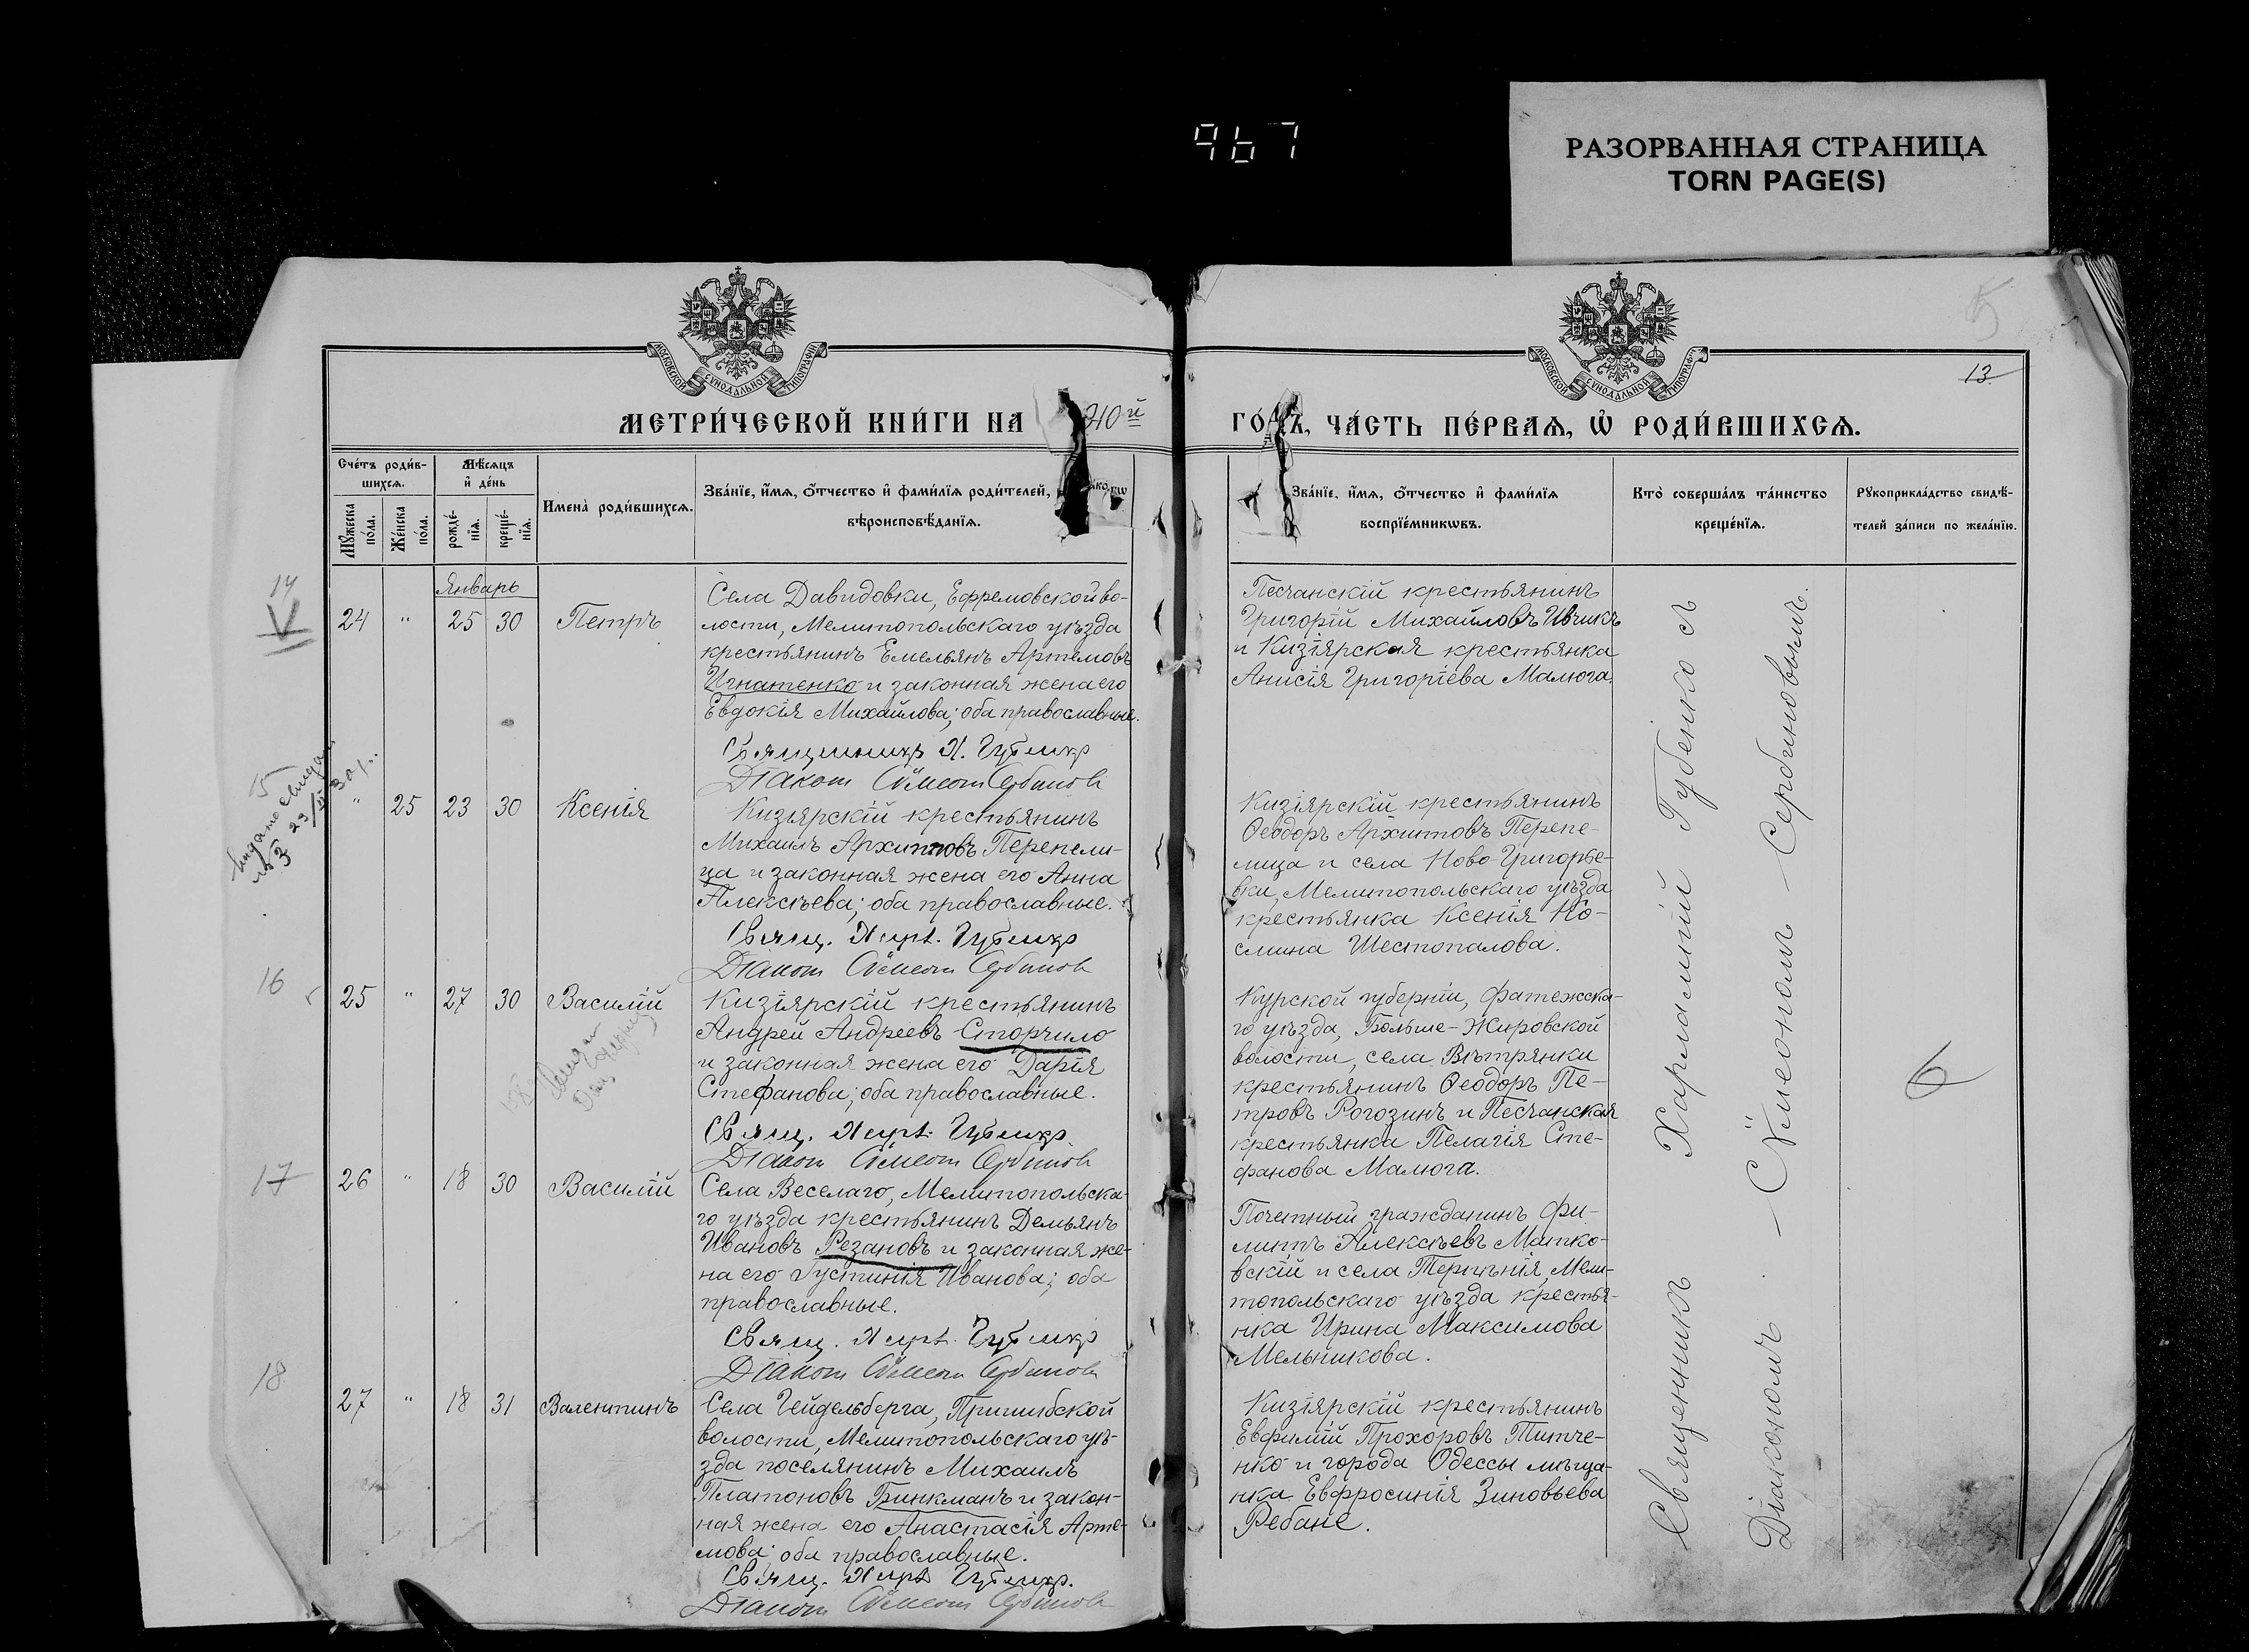 967
РАЗОРВАННАЯ СТРАНИЦА
TORN PAGE(S)
МОСКОВСКОЙ СѴНОДАЛЬНОЙ ТИПОГРАФІИ
МОСКОВСКОЙ СѴНОДАЛЬНОЙ ТИПОГРАФІИ
5
13
МЕТРИ́ЧЕСКОЙ КНИ́ГИ НА 10й
ГО́ Ъ, ЧА́СТЬ ПЕ́РВАѦ, Ѡ҆ РОДИ́ВШИХСѦ.
Сче́тъ роди́в-
шихсѧ.
Мꙋ́жеска по́ла.
Же́нска по́ла.
Мѣ́сѧцъ
и҆ де́нь
рожде́-
нїѧ.
креще́-
нїѧ.
Имена̀ роди́вшихсѧ.
Зва́нїе, и҆́мѧ, ѻ҆́тчество и҆ фами́лїѧ роди́телей,
вѣроисповѣ́данїѧ.
Зва́нїе, и҆́мѧ, ѻ҆́тчество и҆ фами́лїѧ
воспрїе́мникѡвъ.
Кто̀ соверша́лъ та́инство
креще́нїѧ.
Рꙋкоприкла́дство свидѣ́-
телей за́писи по жела́нїю.
14
V
Январь
24 " 25 30 Петръ
Села Давидовки, Ефремовской во-
лости, Мелитопольскаго уѣзда
крестьянинъ Емельянъ Артемовъ
Игнатенко и законная жена его
Евдокія Михайлова; оба православные.
Священникъ Х. Губенко
Діаконъ Сѵмеонъ Сербиновъ
Песчанскій крестьянинъ
Григорій Михайловъ Ивчикъ
и Кизіярская крестьянка
Анисія Григоріева Малюга.
15
№ 3
" 25 23 30 Ксенія
Кизіярскій крестьянинъ
Михаилъ Архиповъ Перепели-
ца и законная жена его Анна
Алексѣева; оба православные.
Свящ. Харл. Губенко
Діаконъ Сѵмеонъ Сербиновъ
Кизіярскій крестьянинъ
Ѳеодоръ Архиповъ Перепе-
лица и села Ново-Григорье-
вки, Мелитопольскаго уѣзда
крестьянка Ксенія Ко-
смина Шестопалова.
16
25 " 27 30 Василій
Кизіярскій крестьянинъ
Андрей Андреевъ Сторчило
и законная жена его Дарія
Стефанова; оба православные.
Свящ. Харл. Губенко
Діаконъ Сѵмеонъ Сербиновъ
Курской губерніи, Фатежска-
го уѣзда, Больше-Жировской
волости, села Вѣтрянки
крестьянинъ Ѳеодоръ Пе-
тровъ Рогозинъ и Песчанская
крестьянка Пелагія Сте-
фанова Малюга.
17
26 " 18 30 Василій
Села Веселаго, Мелитопольска-
го уѣзда крестьянинъ Демьянъ
Ивановъ Резановъ и законная же-
на его Іустинія Иванова; оба
православные.
Свящ. Харл. Губенко
Діаконъ Сѵмеонъ Сербиновъ
Почетный гражданинъ Фи-
липпъ Алексѣевъ Матко-
вскій и села Терпѣнія, Мели-
топольскаго уѣзда крестья-
нка Ирина Максимова
Мельникова.
18
27 " 18 31 Валентинъ
Села Гейдельберга, Пришибской
волости, Мелитопольскаго уѣ-
зда поселянинъ Михаилъ
Платоновъ Бринкманъ и закон-
ная жена его Анастасія Арте-
мова; оба православные.
Свящ. Харл. Губенко.
Діаконъ Сѵмеонъ Сербиновъ
Кизіярскій крестьянинъ
Евфимій Прохоровъ Титче-
нко и города Одессы мѣща-
нка Евфросинія Зиновьева
Ребане.
Священникъ Харлампій Губенко съ
Діакономъ - Сѵмеономъ - Сербиновымъ.